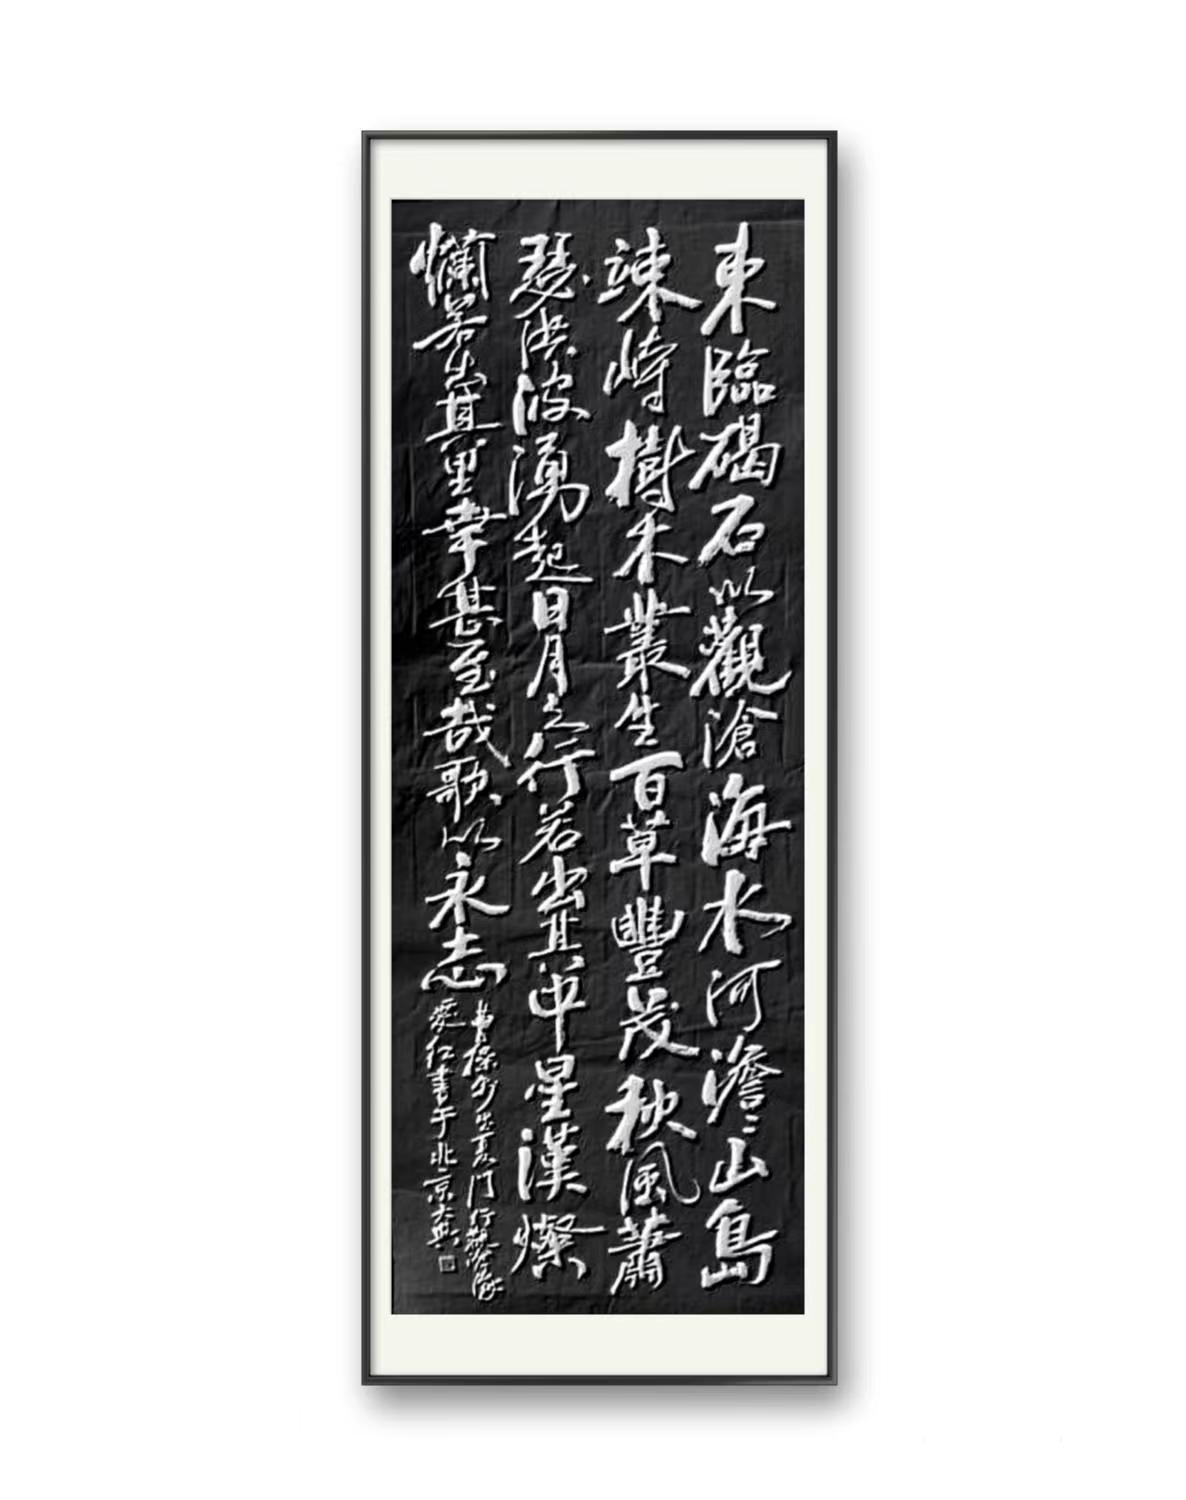 東臨碣石以觀滄海水河澹〻山島
竦峙樹木叢生百草豐茂秋風蕭
瑟洪波湧起日月之行若出其中星漢燦
爛若出其里幸甚至哉歌以永志
曹操步出夏門行觀滄海
愛红書于北京大興